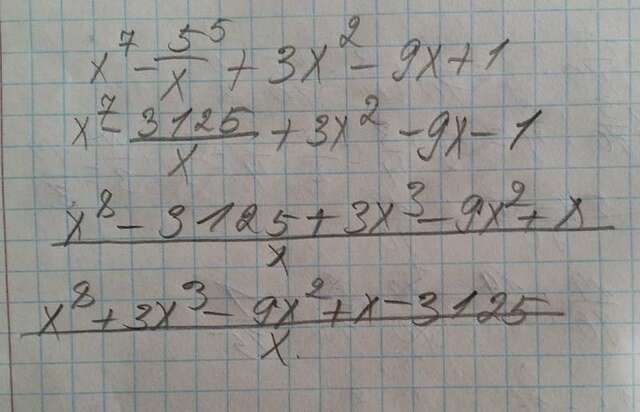 x⁷ - 5⁵/x + 3x² - 9x + 1
x⁷ - 3125/x + 3x² - 9x - 1
(x⁸ - 3125 + 3x³ - 9x² + x)/x
(x⁸ + 3x³ - 9x² + x - 3125)/x.